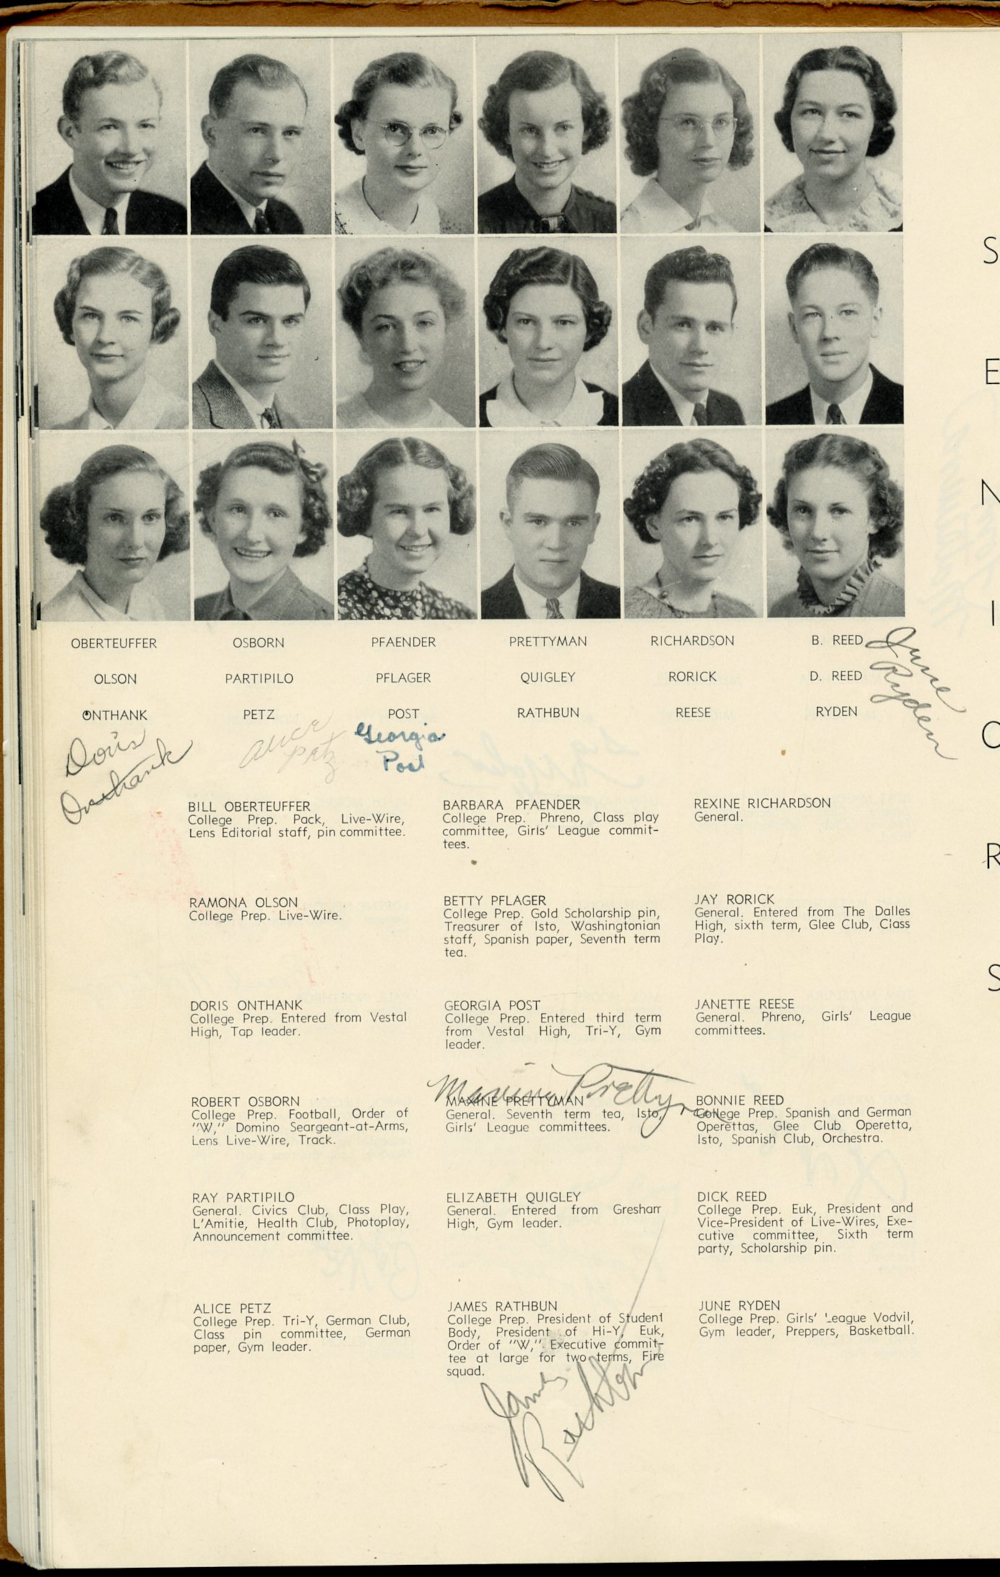 OBERTEUFFER OSBORN PFAENDER PRETTYMAN RICHARDSON B. REED
OLSON PARTIPILO PFLAGER QUIGLEY RORICK D. REED
ONTHANK PETZ POST RATHBUN REESE RYDEN
June
Ryden
Doris
Onthank
Alice
Petz
Georgia
Post
BILL OBERTEUFFER
College Prep. Pack, Live-Wire,
Lens Editorial staff, pin committee.
RAMONA OLSON
College Prep. Live-Wire.
DORIS ONTHANK
College Prep. Entered from Vestal
High, Tap leader.
ROBERT OSBORN
College Prep. Football, Order of
"W," Domino Seargeant-at-Arms,
Lens Live-Wire, Track.
RAY PARTIPILO
General. Civics Club, Class Play,
L'Amitie, Health Club, Photoplay,
Announcement committee.
ALICE PETZ
College Prep. Tri-Y, German Club,
Class pin committee, German
paper, Gym leader.
BARBARA PFAENDER
College Prep. Phreno, Class play
committee, Girls' League commit-
tees.
BETTY PFLAGER
College Prep. Gold Scholarship pin,
Treasurer of Isto, Washingtonian
staff, Spanish paper, Seventh term
tea.
GEORGIA POST
College Prep. Entered third term
from Vestal High, Tri-Y, Gym
leader.
Maxine Prettyman
MAXINE PRETTYMAN
General. Seventh term tea, Isto,
Girls' League committees.
ELIZABETH QUIGLEY
General. Entered from Gresham
High, Gym leader.
JAMES RATHBUN
College Prep. President of Student
Body, President of Hi-Y, Euk,
Order of "W," Executive commit-
tee at large for two terms, Fire
squad.
James
Rathbun
REXINE RICHARDSON
General.
JAY RORICK
General. Entered from The Dalles
High, sixth term, Glee Club, Class
Play.
JANETTE REESE
General. Phreno, Girls' League
committees.
BONNIE REED
College Prep. Spanish and German
Operettas, Glee Club Operetta,
Isto, Spanish Club, Orchestra.
DICK REED
College Prep. Euk, President and
Vice-President of Live-Wires, Exe-
cutive committee, Sixth term
party, Scholarship pin.
JUNE RYDEN
College Prep. Girls' League Vodvil,
Gym leader, Preppers, Basketball.
S
E
N
I
O
R
S